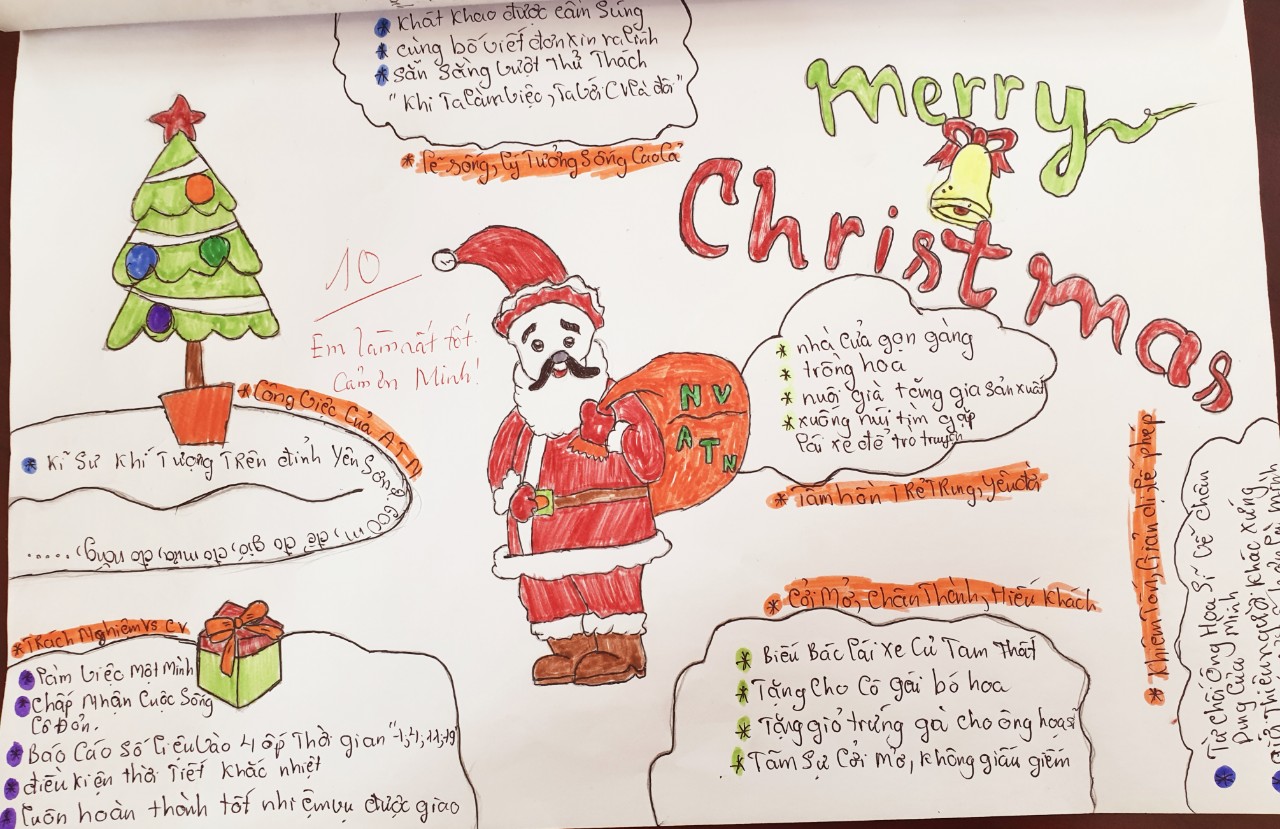 * khát khao được cầm súng
* cùng bố viết đơn xin ra lính
* sẵn sằng vượt Thử Thách
"Khi Ta làm việc, Ta với CV là đôi"
* lẽ sống, lý Tưởng Sống Cao Cả
merry
Christmas
10
Em làm rất tốt.
Cảm ơn Minh!
* Công việc Của ATN
* Kĩ Sư Khí Tượng Trên đỉnh Yên Sơn
2600m, để đo gió, đo mưa, đo nắng, .....
NV
ATN
* nhà cửa gọn gàng
* trồng hoa
* nuôi gà tăng gia sản xuất
* xuống núi tìm gặp
lái xe để trò truyện
* Tâm hồn TRẻ TRung, yêu đời
* Trách Nghiệm vs CV
* làm việc Một Mình
* Chấp Nhận Cuộc Sống
Cô Đơn.
* Báo Cáo Số liệu vào 4 ốp Thời gian "1, 4, 11, 19"
* điều kiện thời tiết khắc nhiệt
* luôn hoàn thành tốt nhiệm vụ được giao
* Cởi Mở, chân Thành, Hiếu khách
* Biếu Bác lái xe Củ Tam Thất
* Tặng Cho Cô gái bó hoa
* Tặng giỏ trứng gà cho ông hoạ sĩ
* Tâm Sự Cởi Mở, không giấu giếm
* khiêm Tốn, Giản dị, lễ phép
* Từ chối Ông Họa Sĩ Vẽ Chân
Dung Của Mình
* Giới Thiệu người khác xứng